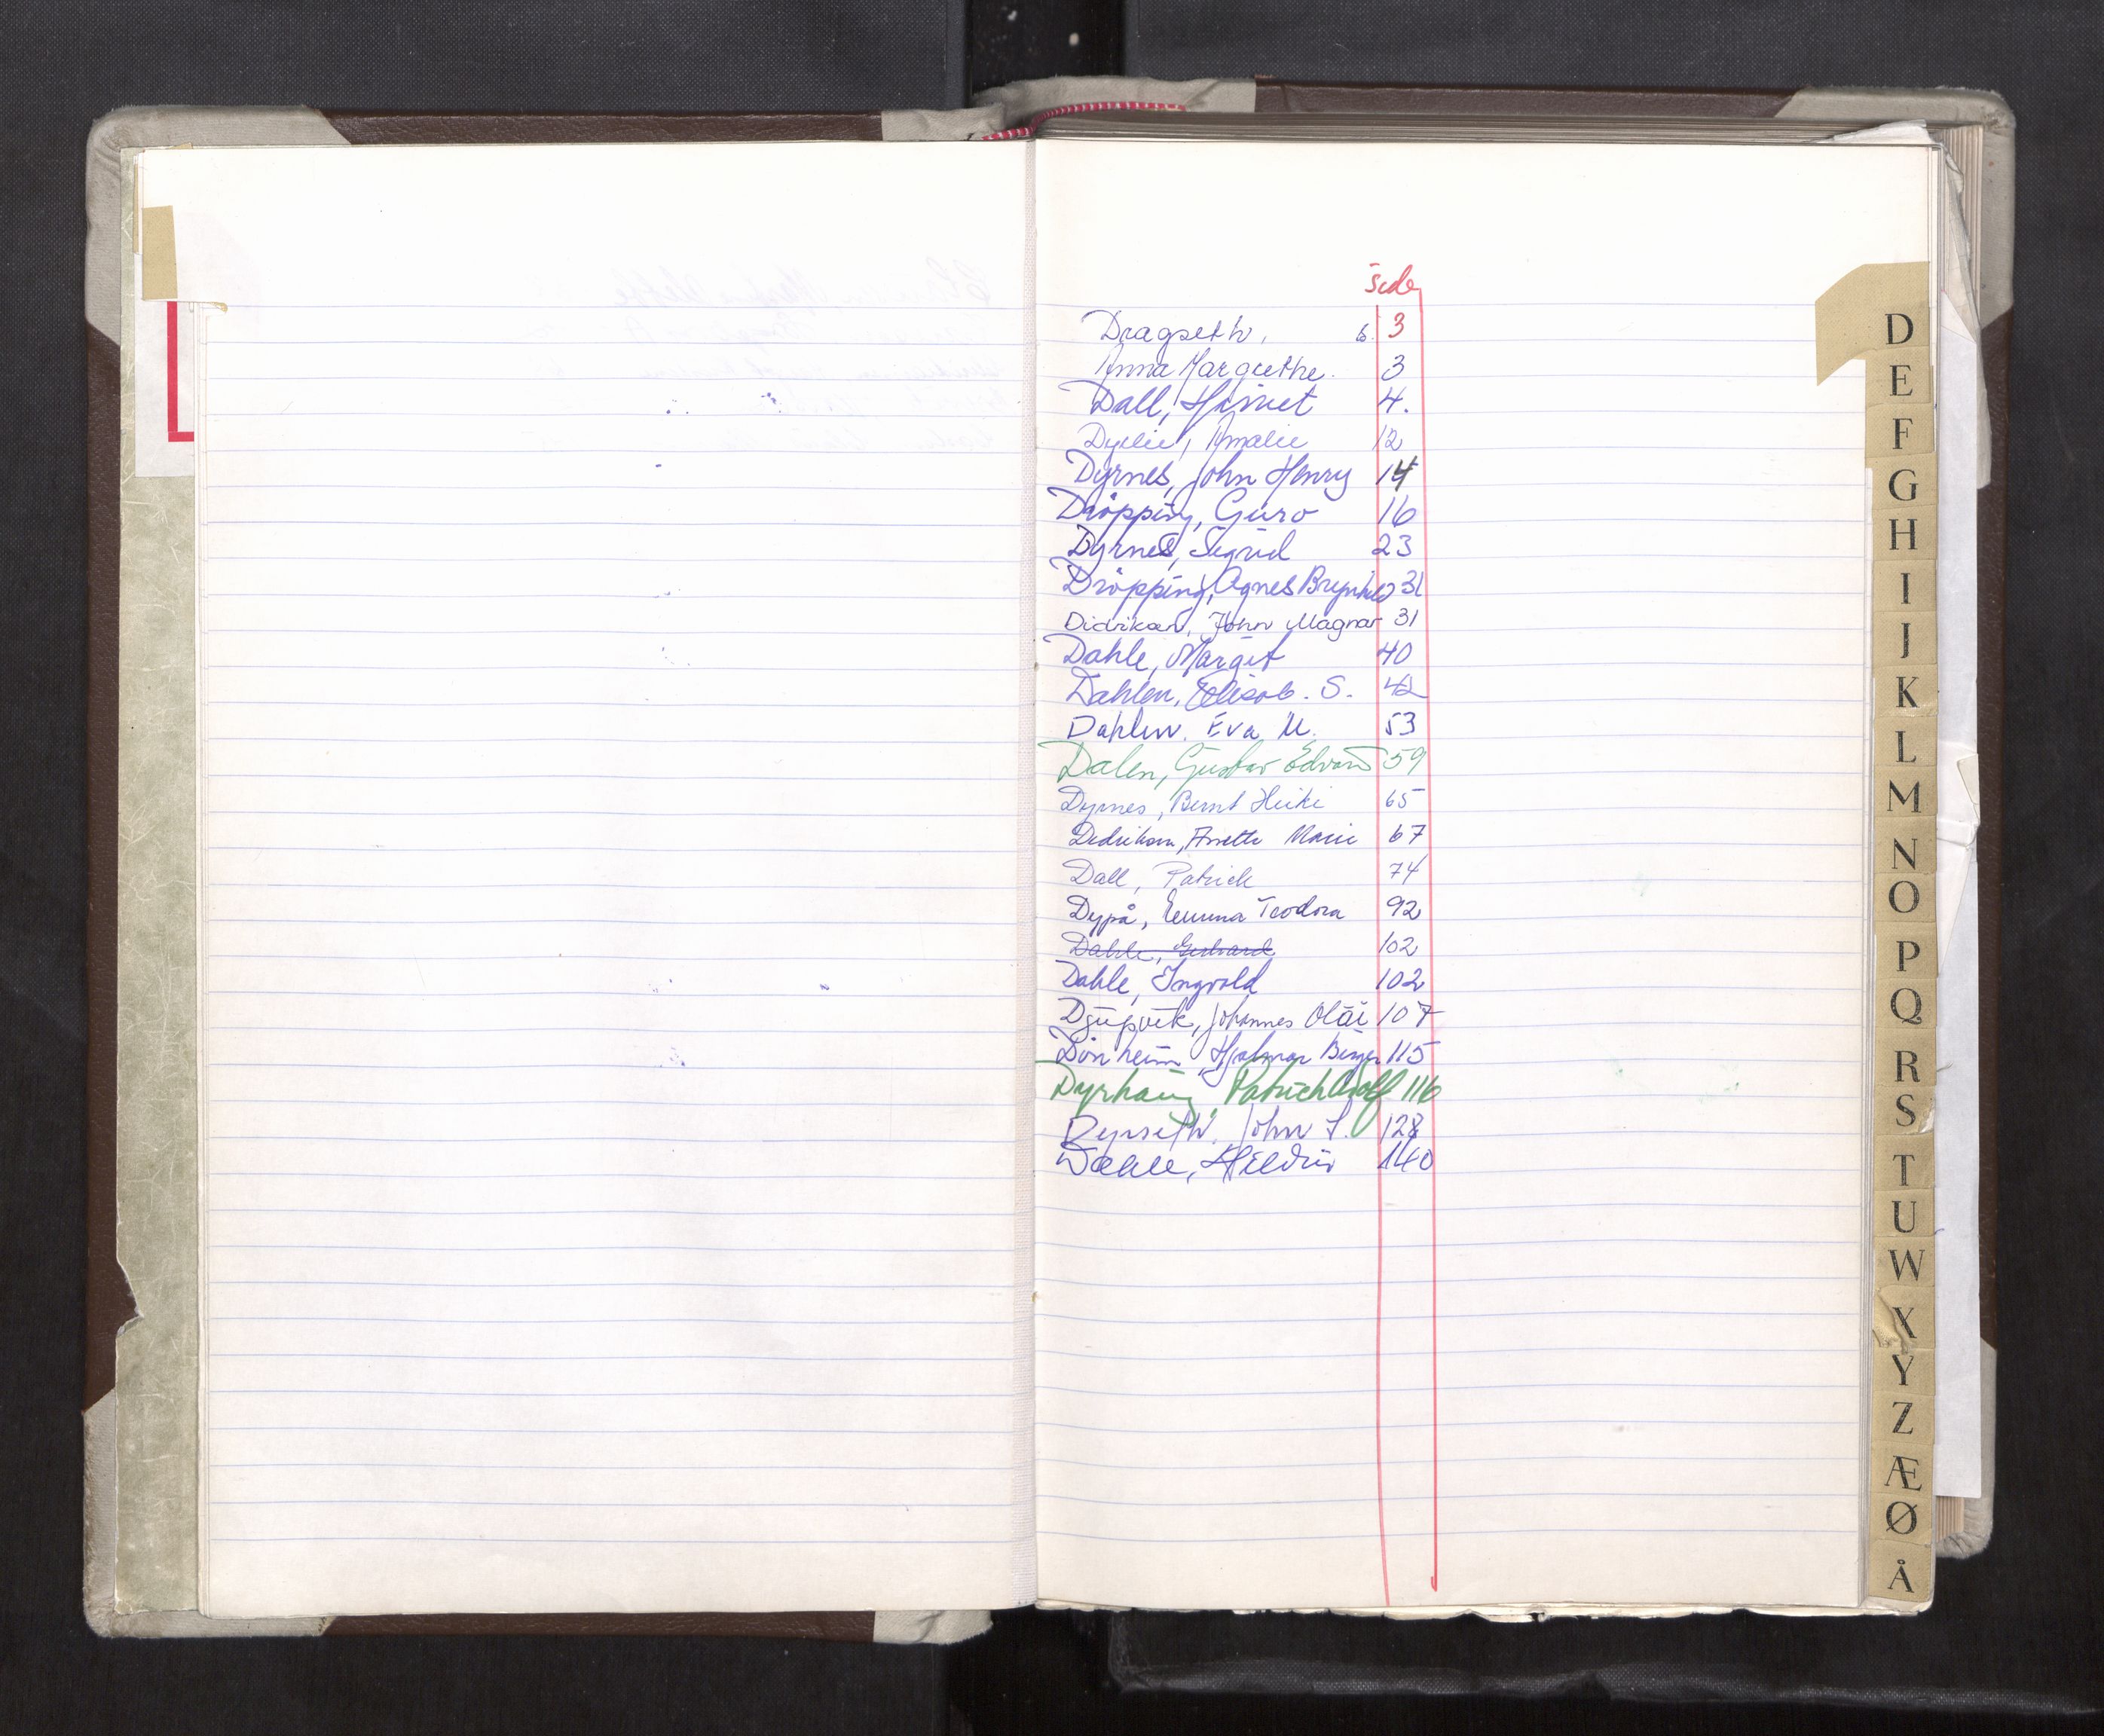 Side
Dragseth, b. 3
Anna Margrethe. 3
Dall, Harriet 4.
Amalie 12
Dyrnes, John Henry 14
Dröpping, Guro 16
Dyrnes, Sigrid 23
Dröpping, Agnes Brynhild 31
Didriksen, John Magnar 31
Dahle, Margit 40
Dahlen, Elisab. S. 42
Dahlen. Eva M. 53
Dalen, Gustav Edvard 59
Dyrnes, Bernt 65
Didriksen, Anette Marie 67
Dall, Patrick 74
Dypå, Emma Teodora 92
Dahle, Gerhard 102
Dahle, Ingvald 102
Djupvik, Johannes Olai 107
Dönheim, Hjalmar Birger 115
Dyrhaug, Patrick Adolf 116
Dyrseth, John L. 128
Dahle, Hildur 140
D
E
F
G
H
I
J
K
L
M
N
O
P
Q
R
S
T
U
W
X
Y
Z
Æ
Ø
Å